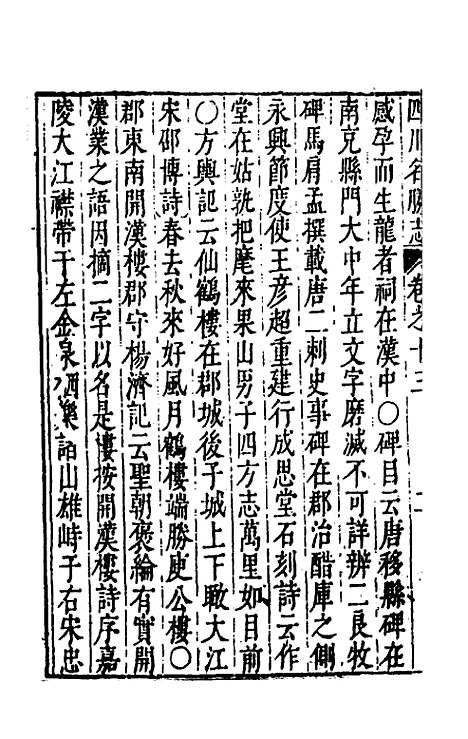 四川名勝志　卷之十三　二
感孕而生龍者祠在漢中○碑目云唐移縣碑在
南充縣門大中年立文字磨滅不可詳辨二良牧
碑馬肩孟撰載唐二刺史事碑在郡治醋庫之側
永興節度使王彦超重建行成思堂石刻詩云作
堂在姑孰把麾來果山男子四方志萬里如目前
○方輿記云仙鶴樓在郡城後子城上下瞰大江
宋邵傳詩春去秋來好風月鶴樓端勝庾公樓○
郡東南開漢樓郡守楊濟記云聖朝褒綸有實開
漢業之語因摘二字以名是樓按開漢樓詩序嘉
陵大江襟帶于左金泉酒樂諸山雄峙于右宋忠